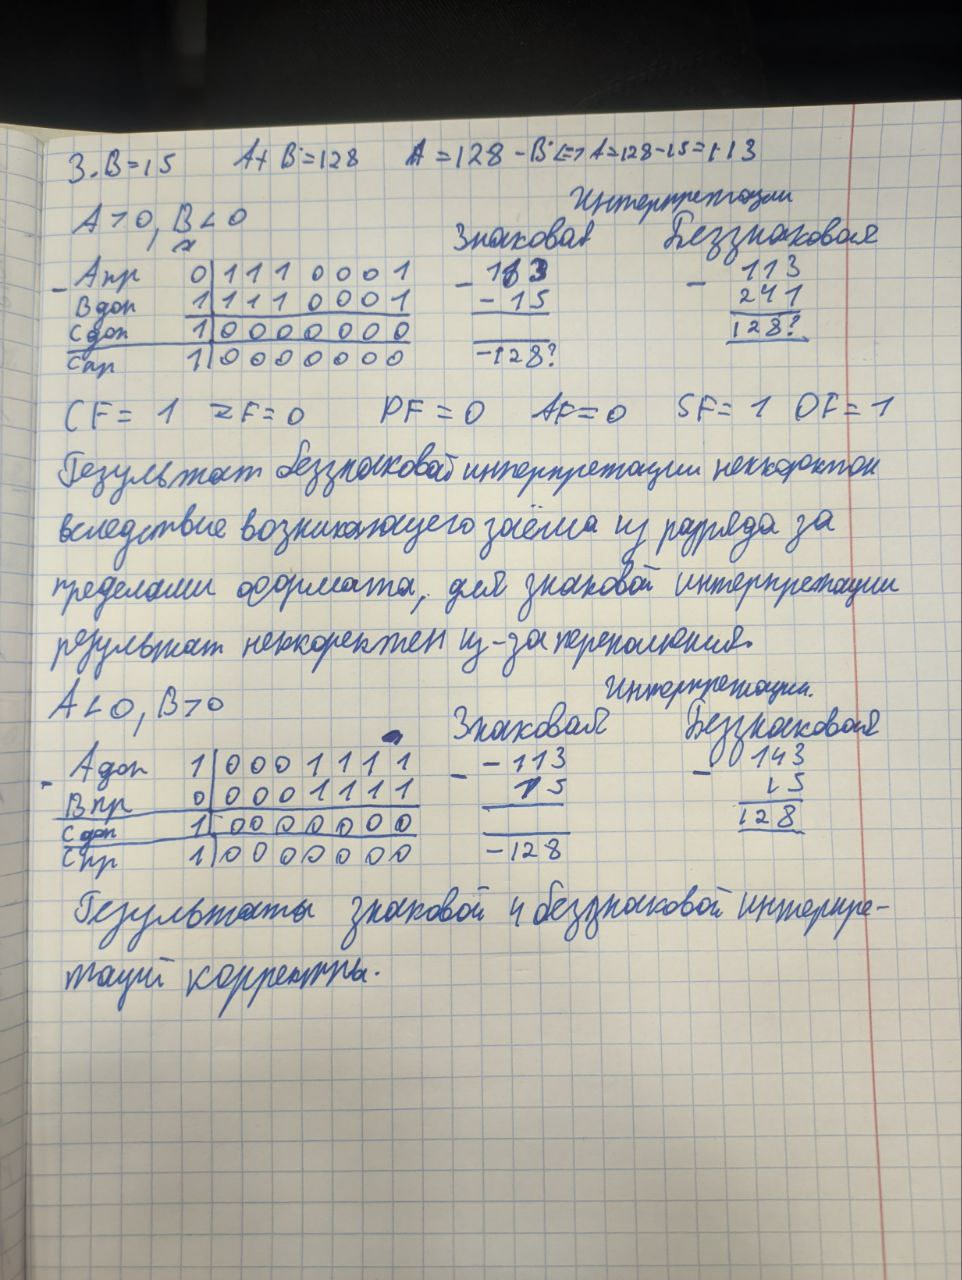 3. B=15 A+B=128 A=128-B<=>A=128-15=113
A>0, B<0
Интерпретации
Знаковая Беззнаковая
- Aпр 0|1110001 - 113 - 113
Bдоп 1|1110001 -15 241
Cдоп 1|0000000 128?
Cпр 1|0000000 -128?
CF=1 ZF=0 PF=0 AF=0 SF=1 OF=1
Результат беззнаковой интерпретации неккоректен
вследствие возникающего заёма из разряда за
пределами формата, для знаковой интерпретации
результат неккоректен из-за переполнения.
A<0, B>0
Интерпретации.
Знаковая Беззнаковая
- Aдоп 1|0001111 - -113 - 143
Bпр 0|0001111 15 15
Cдоп 1|0000000 128
Cпр 1|0000000 -128
Результаты знаковой и беззнаковой интерпре-
таций корректны.